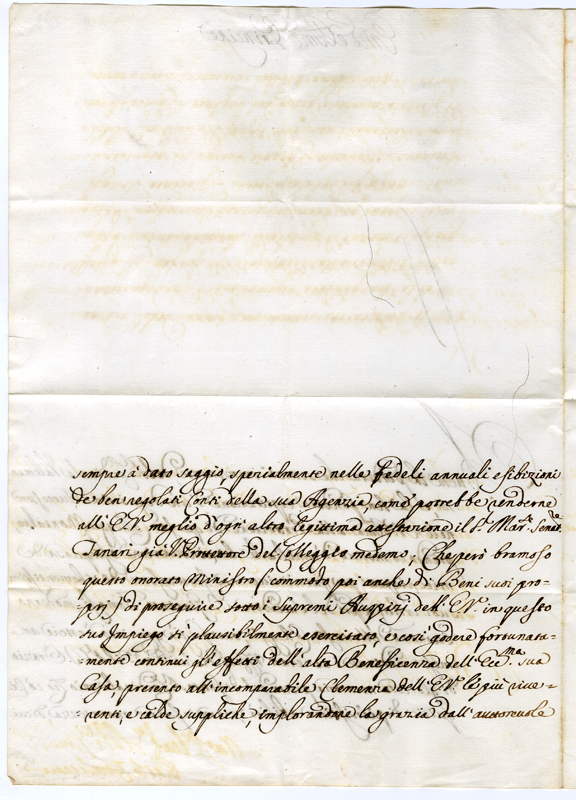 sempre à dato saggio, specialmente nelle fedeli annuali esibizioni
de ben regolati Conti della sua Agenzia, come potrebbe renderne
all' E.V. meglio d'ogni altro legittima attestazione il S.r Mar.se Senat.re
Tanari già Protettore del Colleggio medemo; Che però bramoso
questo onorato Ministro (commodo poi anche di Beni suoi pro-
-prj) di proseguire sotto i supremi Auspizj dell' E.V. in questo
suo Impiego sì plausibilmente esercitato, e così godere fortunata-
-mente continui gli effetti dell' alta Beneficenza dell' Ecc.ma sua
Casa presenta all' incomparabile Clemenza dell' E.V. le più rive-
renti, e calde suppliche, implorandone la grazia dall' autorevole